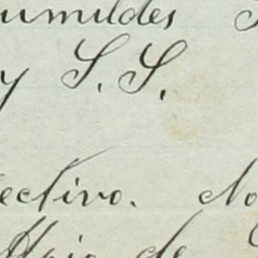 umildes
y S. S.
ectivo. No
de